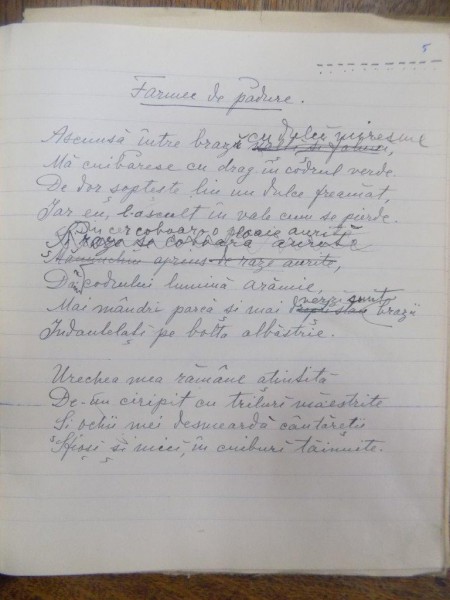 5
Farmec de pădure.
Ascunsă între brazi cu dulci miresme
Mă cuibăresc cu drag în codrul verde.
De dor șoptește lin un dulce freamăt,
Iar eu, l-ascult în vale cum se pierde.
Din cer coboară o ploaie aurită
raze se coboară
aprins de raze aurite,
Dă codrului lumină arămie,
Mai mândri parcă și mai verzi sunt brazii
Îndantelați pe bolta albastrie.
Urechea mea rămâne ațintită
De-un ciripit cu triluri măestrite
Și ochii mei desmeardă cântăreții
Sfioși și mici, în cuiburi tăinuite.